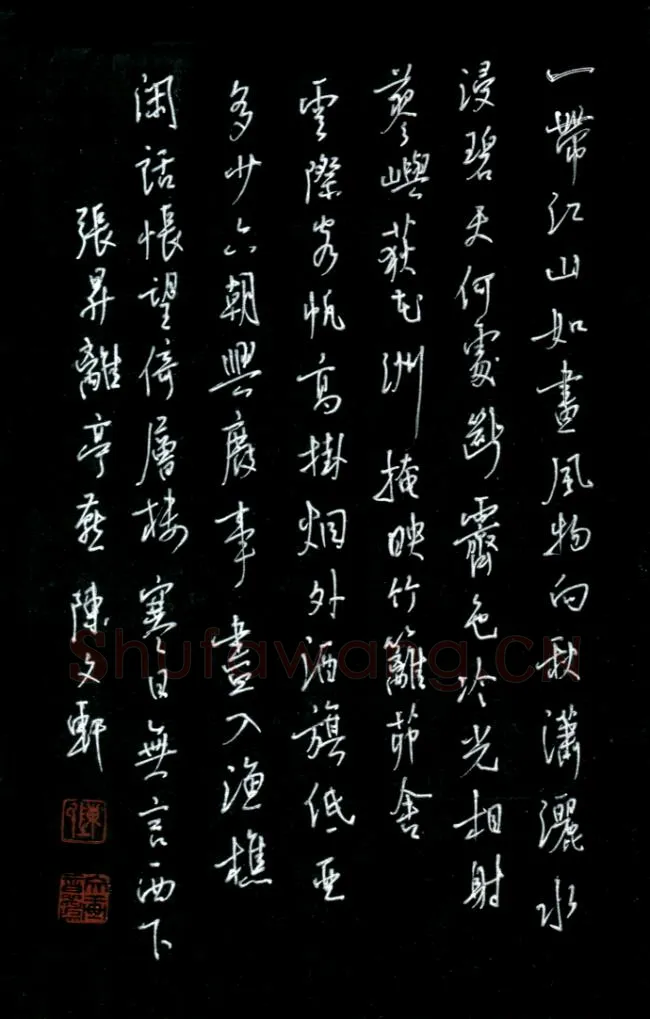 一帶江山如畫風物向秋瀟灑水
浸碧天何處斷霽色冷光相射
蓼嶼荻花洲掩映竹籬茆舍
雲際客帆高掛烟外酒旗低亞
多少六朝興廢事盡入漁樵
閑話悵望倚層樓寒日無言西下
張昇離亭燕 陳文郵
Shufawang.cn